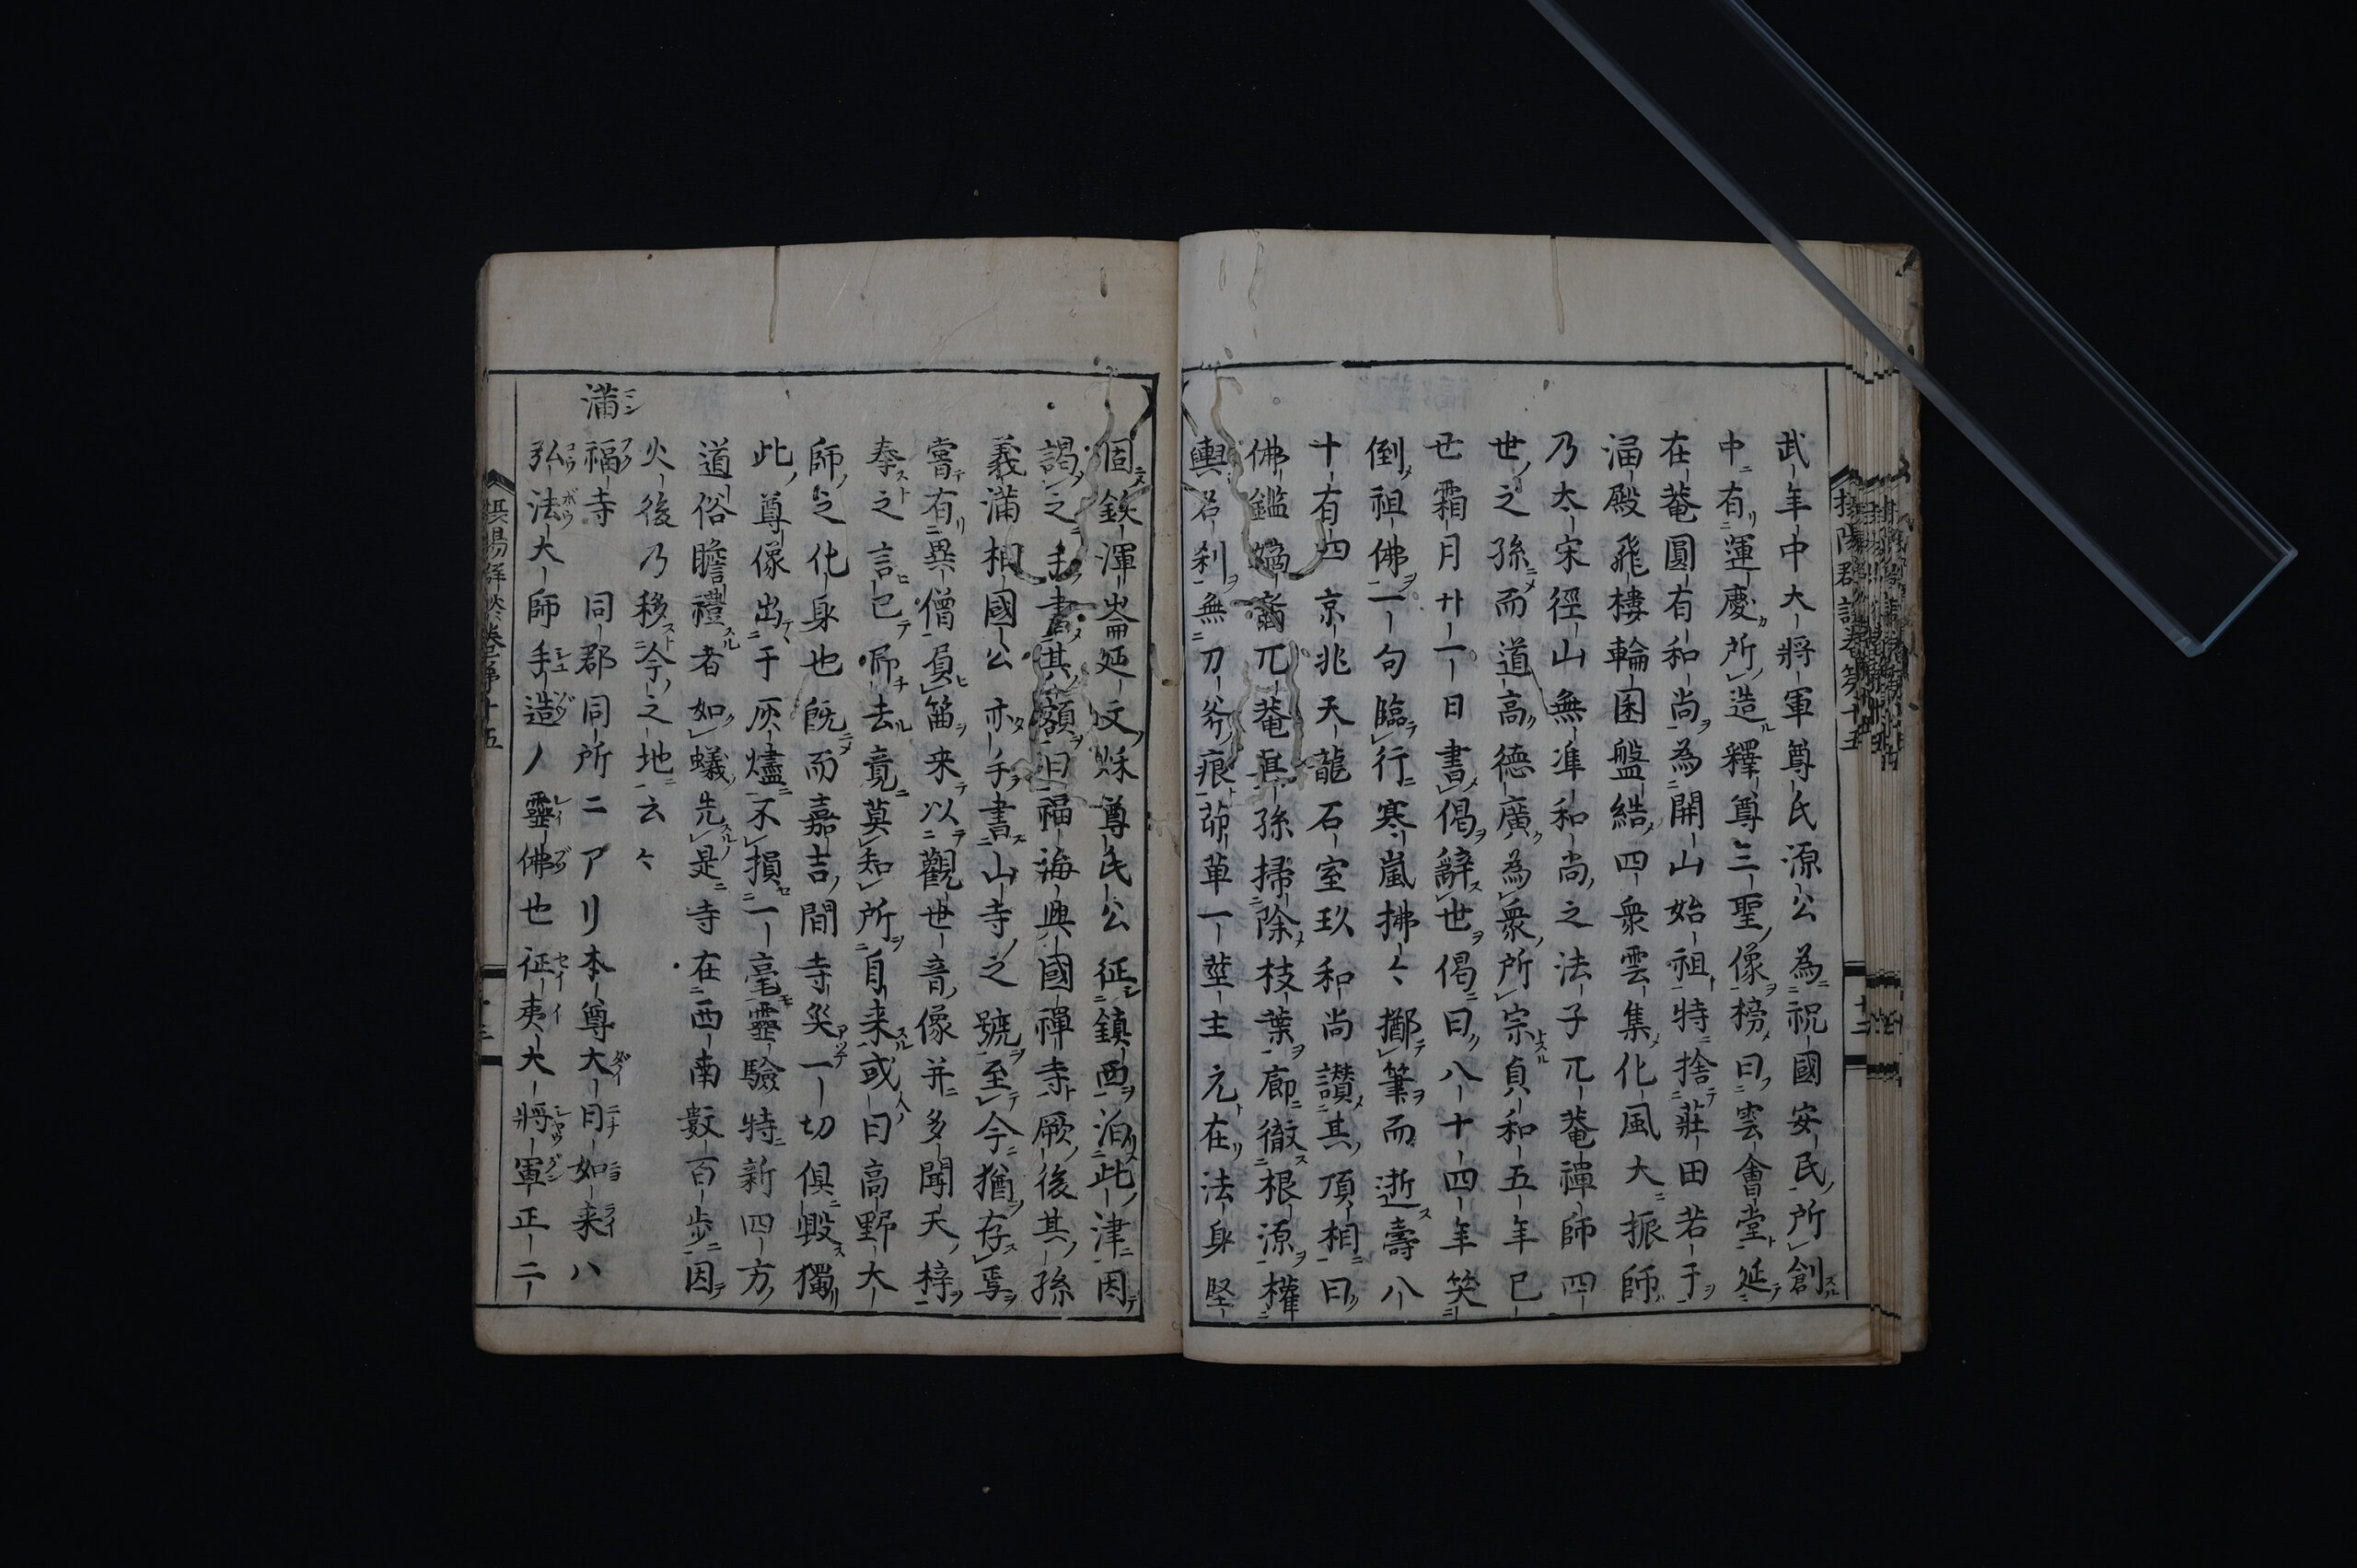 武年中大將軍尊氏源公為祝國安民所創
中有運慶所造釋尊三聖像榜曰雲會堂延
在菴圓有和尚為開山始祖特捨莊田若干
湢殿飛棲輪囷盤結四衆雲集化風大振師
乃太宋徑山無準和尚之法子兀菴禪師四
世之孫而道高德廣為衆所宗貞和五年已
丗霜月廿一日書偈辭世偈曰八十四年笑
倒祖佛一句臨行寒嵐拂々擲筆而逝壽八
十有四京兆天龍石室玖和尚讃其頂相曰
佛鑑嫡裔兀菴真孫掃除枝葉廓徹根源權
輿名刹無刀斧痕茆草一莖主元在法身堅
固欽渾崙逈文烁尊氏公征鎮西泊此津因
謁之手書其額曰福海興國禪寺厥後其孫
義滿相國公亦手書山寺之號至今猶存焉
嘗有異僧負笛来以觀世音像并多聞天梓
奉之言已即去竟莫知所自来或曰高野大
師之化身也既而嘉吉間寺災一切俱毀獨
此尊像出于灰燼不損一毫靈驗特新四方
道俗瞻禮者如蟻先是寺在西南數百歩因
火後乃移今之地云々
滿福寺　同郡同所ニアリ本尊大日如来ハ
弘法大師手造ノ靈佛也征夷大將軍正二
摂陽群談巻第十五